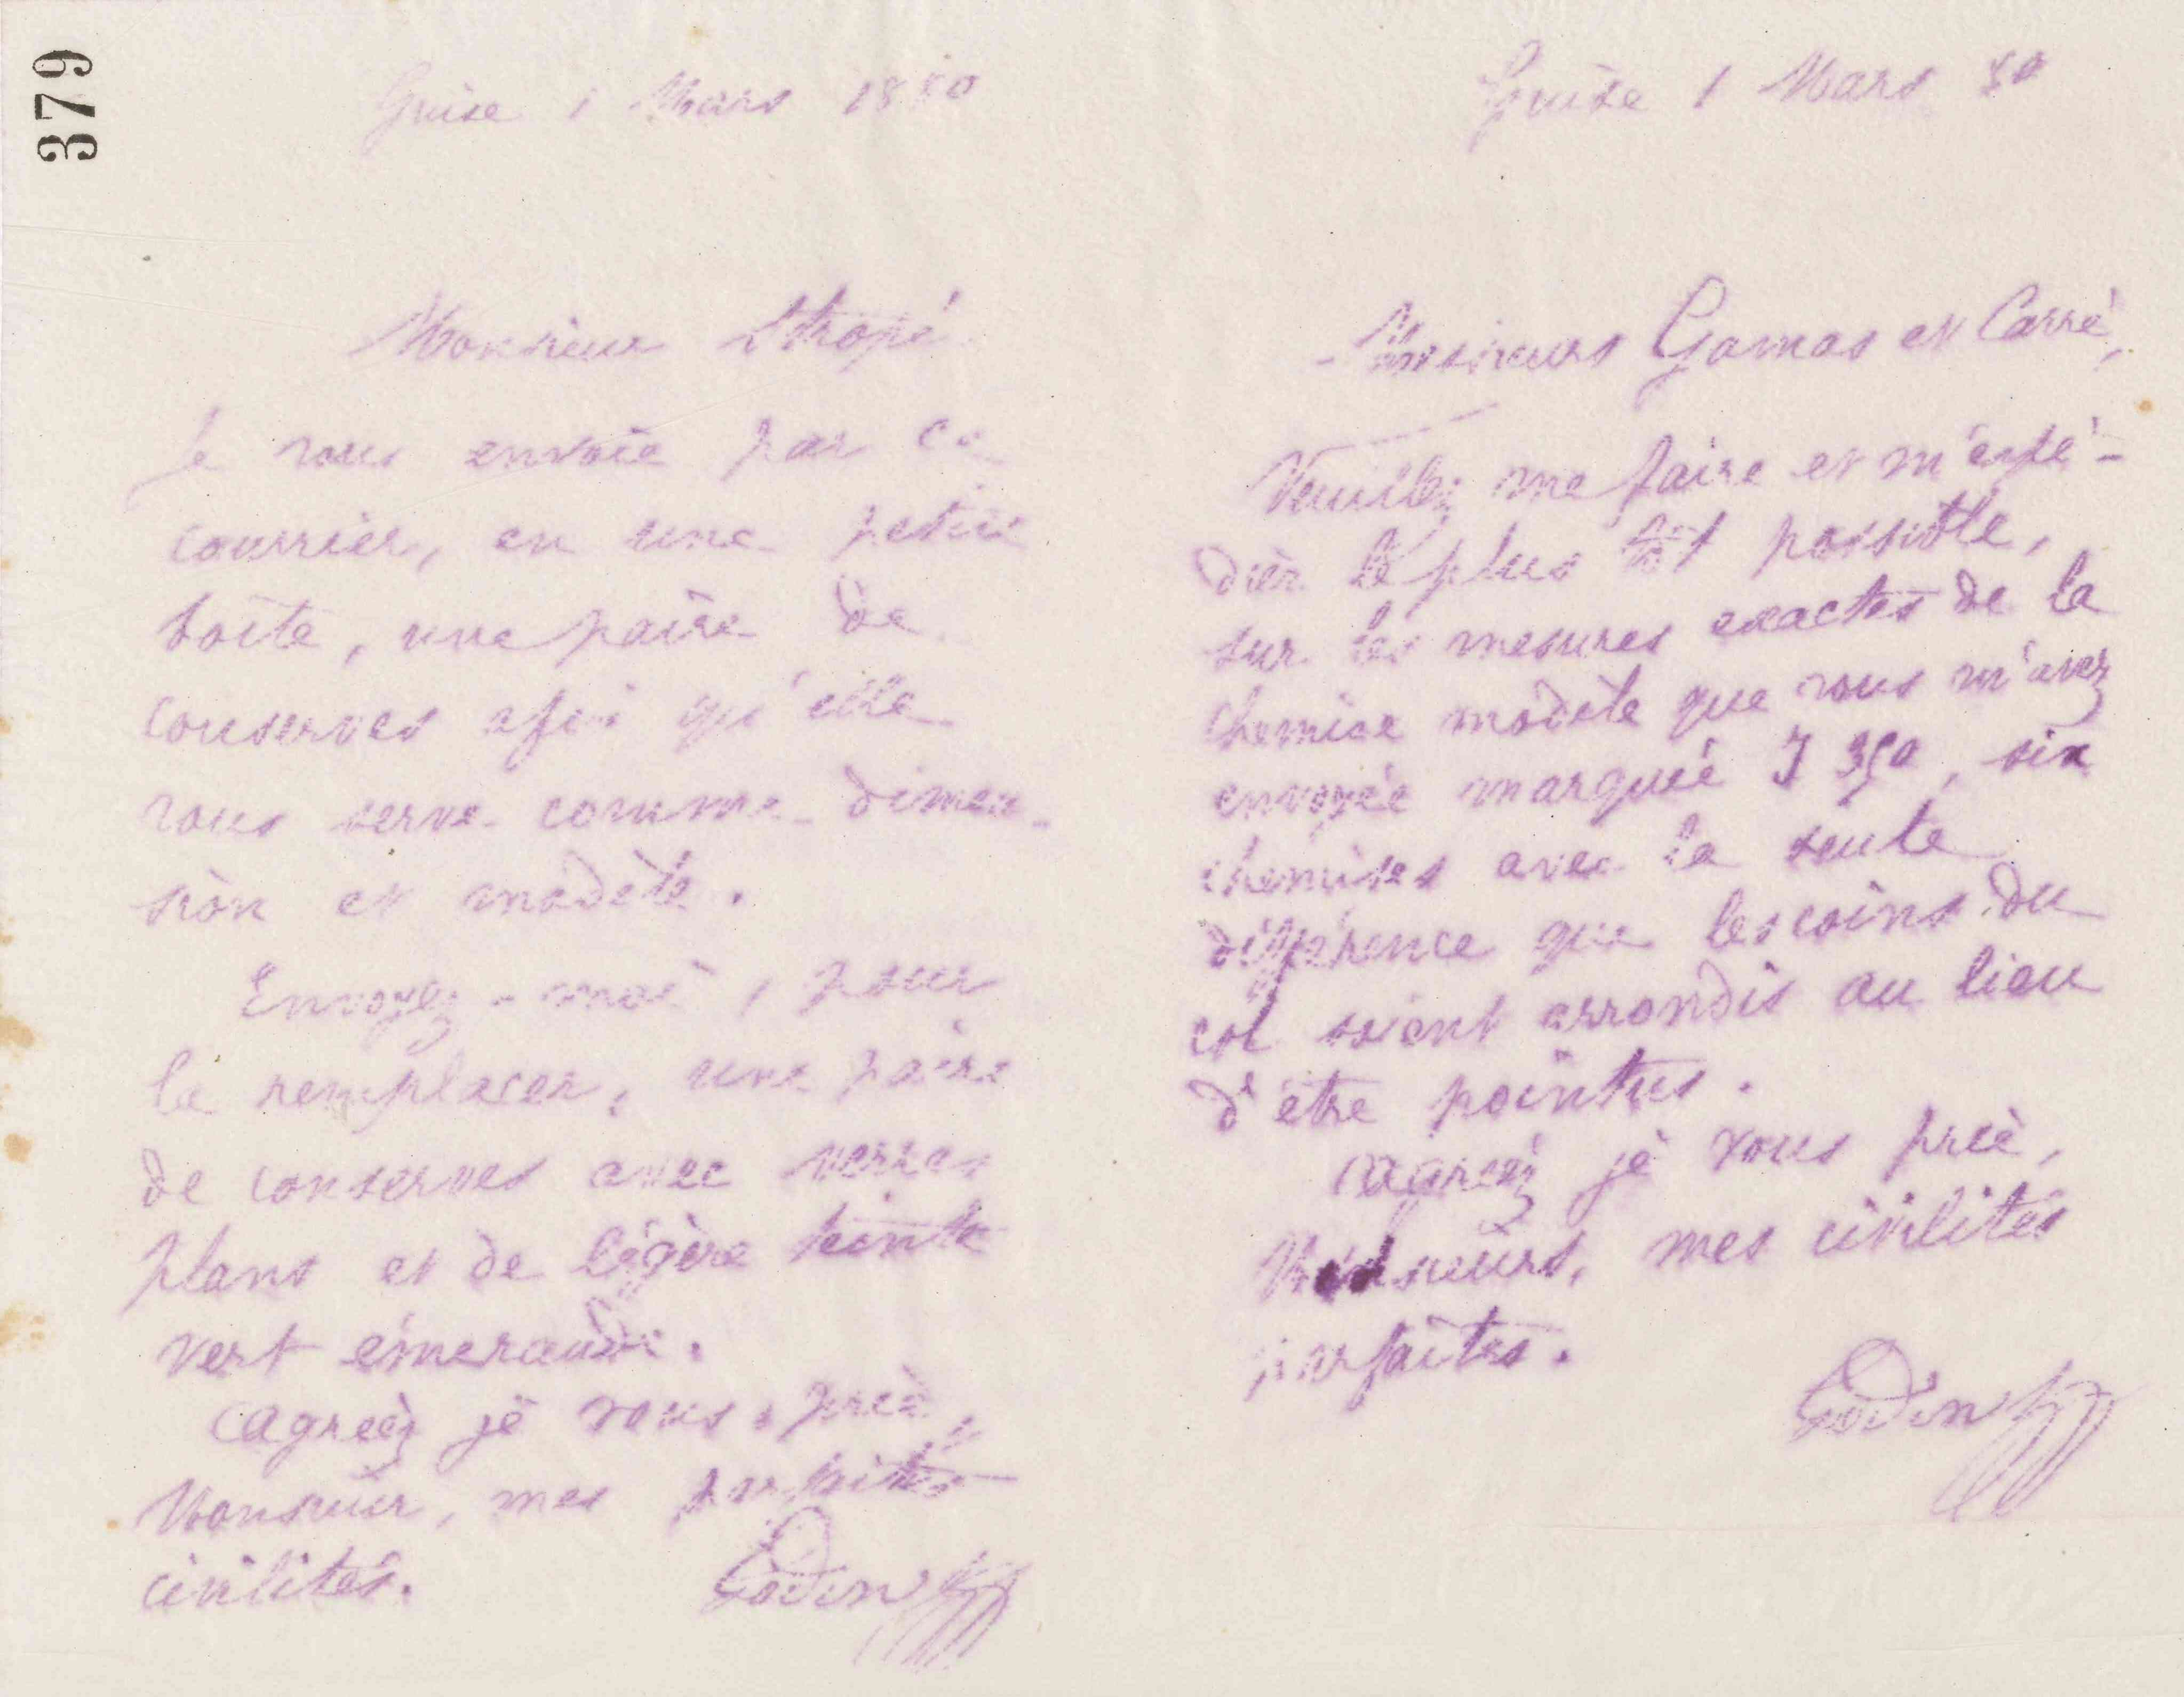 379
Guise 1 Mars 1880
Monsieur
Je vous envoie par ce
courrier, en une petite
boîte, une paire de
conserves afin qu'elle
vous serve comme dimen-
sion et modèle.
Envoyez-moi, pour
la remplacer, une paire
de conserves avec verres
plans et de légère teinte
vert émeraude.
Agréez je vous prie,
Monsieur, mes parfaites
civilités.
Godin
Guise 1 Mars 80
Messieurs Gamas et Carré,
Veuillez me faire et m'expé-
dier le plus tôt possible,
sur les mesures exactes de la
chemise modèle que vous m'avez
envoyée marquée J 350, six
chemises avec la seule
différence que les coins du
col soient arrondis au lieu
d'être pointus.
Agréez je vous prie,
Messieurs, mes civilités
parfaites.
Godin